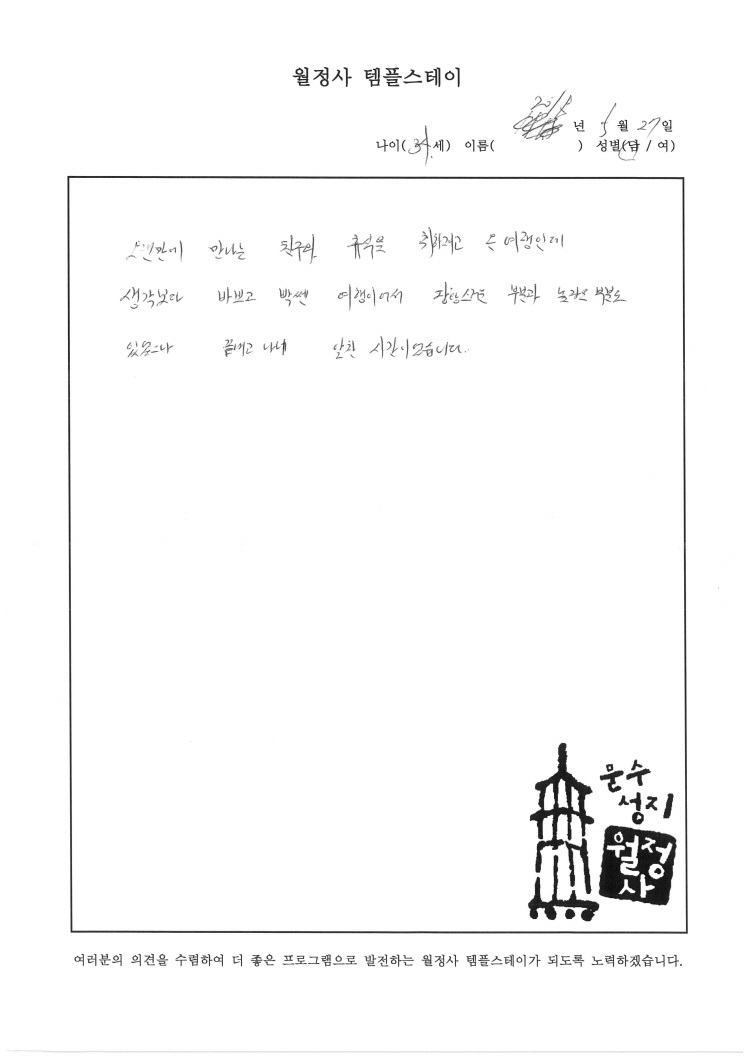 월정사 템플스테이
2018년 5월 27일
나이(34세) 이름( ) 성별(남 / 여)
오랜만에 만나는 친구와 휴식을 취하려고 온 여행인데
생각보다 바쁘고 빡쎈 여행이어서 당황스러운 부분과 놀라운 부분도
있었으나 끝내고 나니 알찬 시간이었습니다.
문수
성지
월정
사
여러분의 의견을 수렴하여 더 좋은 프로그램으로 발전하는 월정사 템플스테이가 되도록 노력하겠습니다.